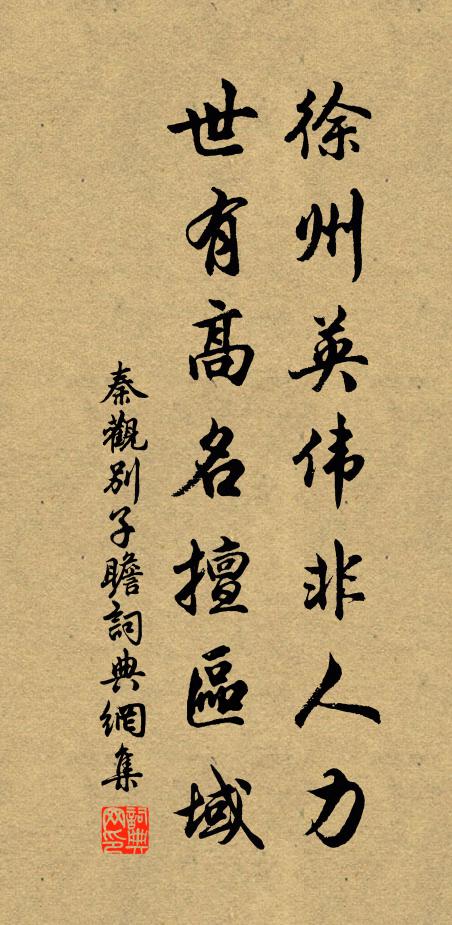 徐州英伟非人力
世有高名擅區域
秦觀別子瞻詞典網集
詞典網印